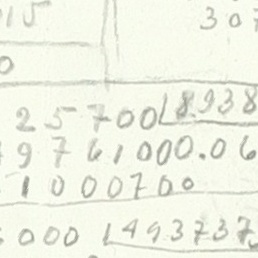 15 307
0
25700 8.938
9761000.06
1000700
000 1493737